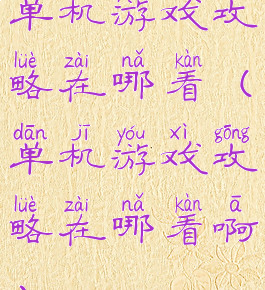 单机游戏攻
lüè zài nǎ kàn
略在哪看(
dān jī yóu xì gōng
单机游戏攻
lüè zài nǎ kàn ā
略在哪看啊